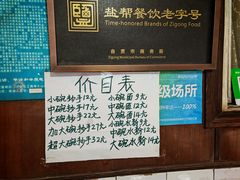 盐帮餐饮老字号
Time-honored Brands of Zigong Food
自贡市商务局
Zigong Municipal Bureau of Commerce
价目表
小碗抄手12元
中碗抄手17元
大碗抄手22元
加大碗抄手27元
超大碗抄手32元
小碗面9元
中碗面12元
大碗面14元
小碗水粉9元
中碗水粉12元
大碗水粉14元
级场所
100%